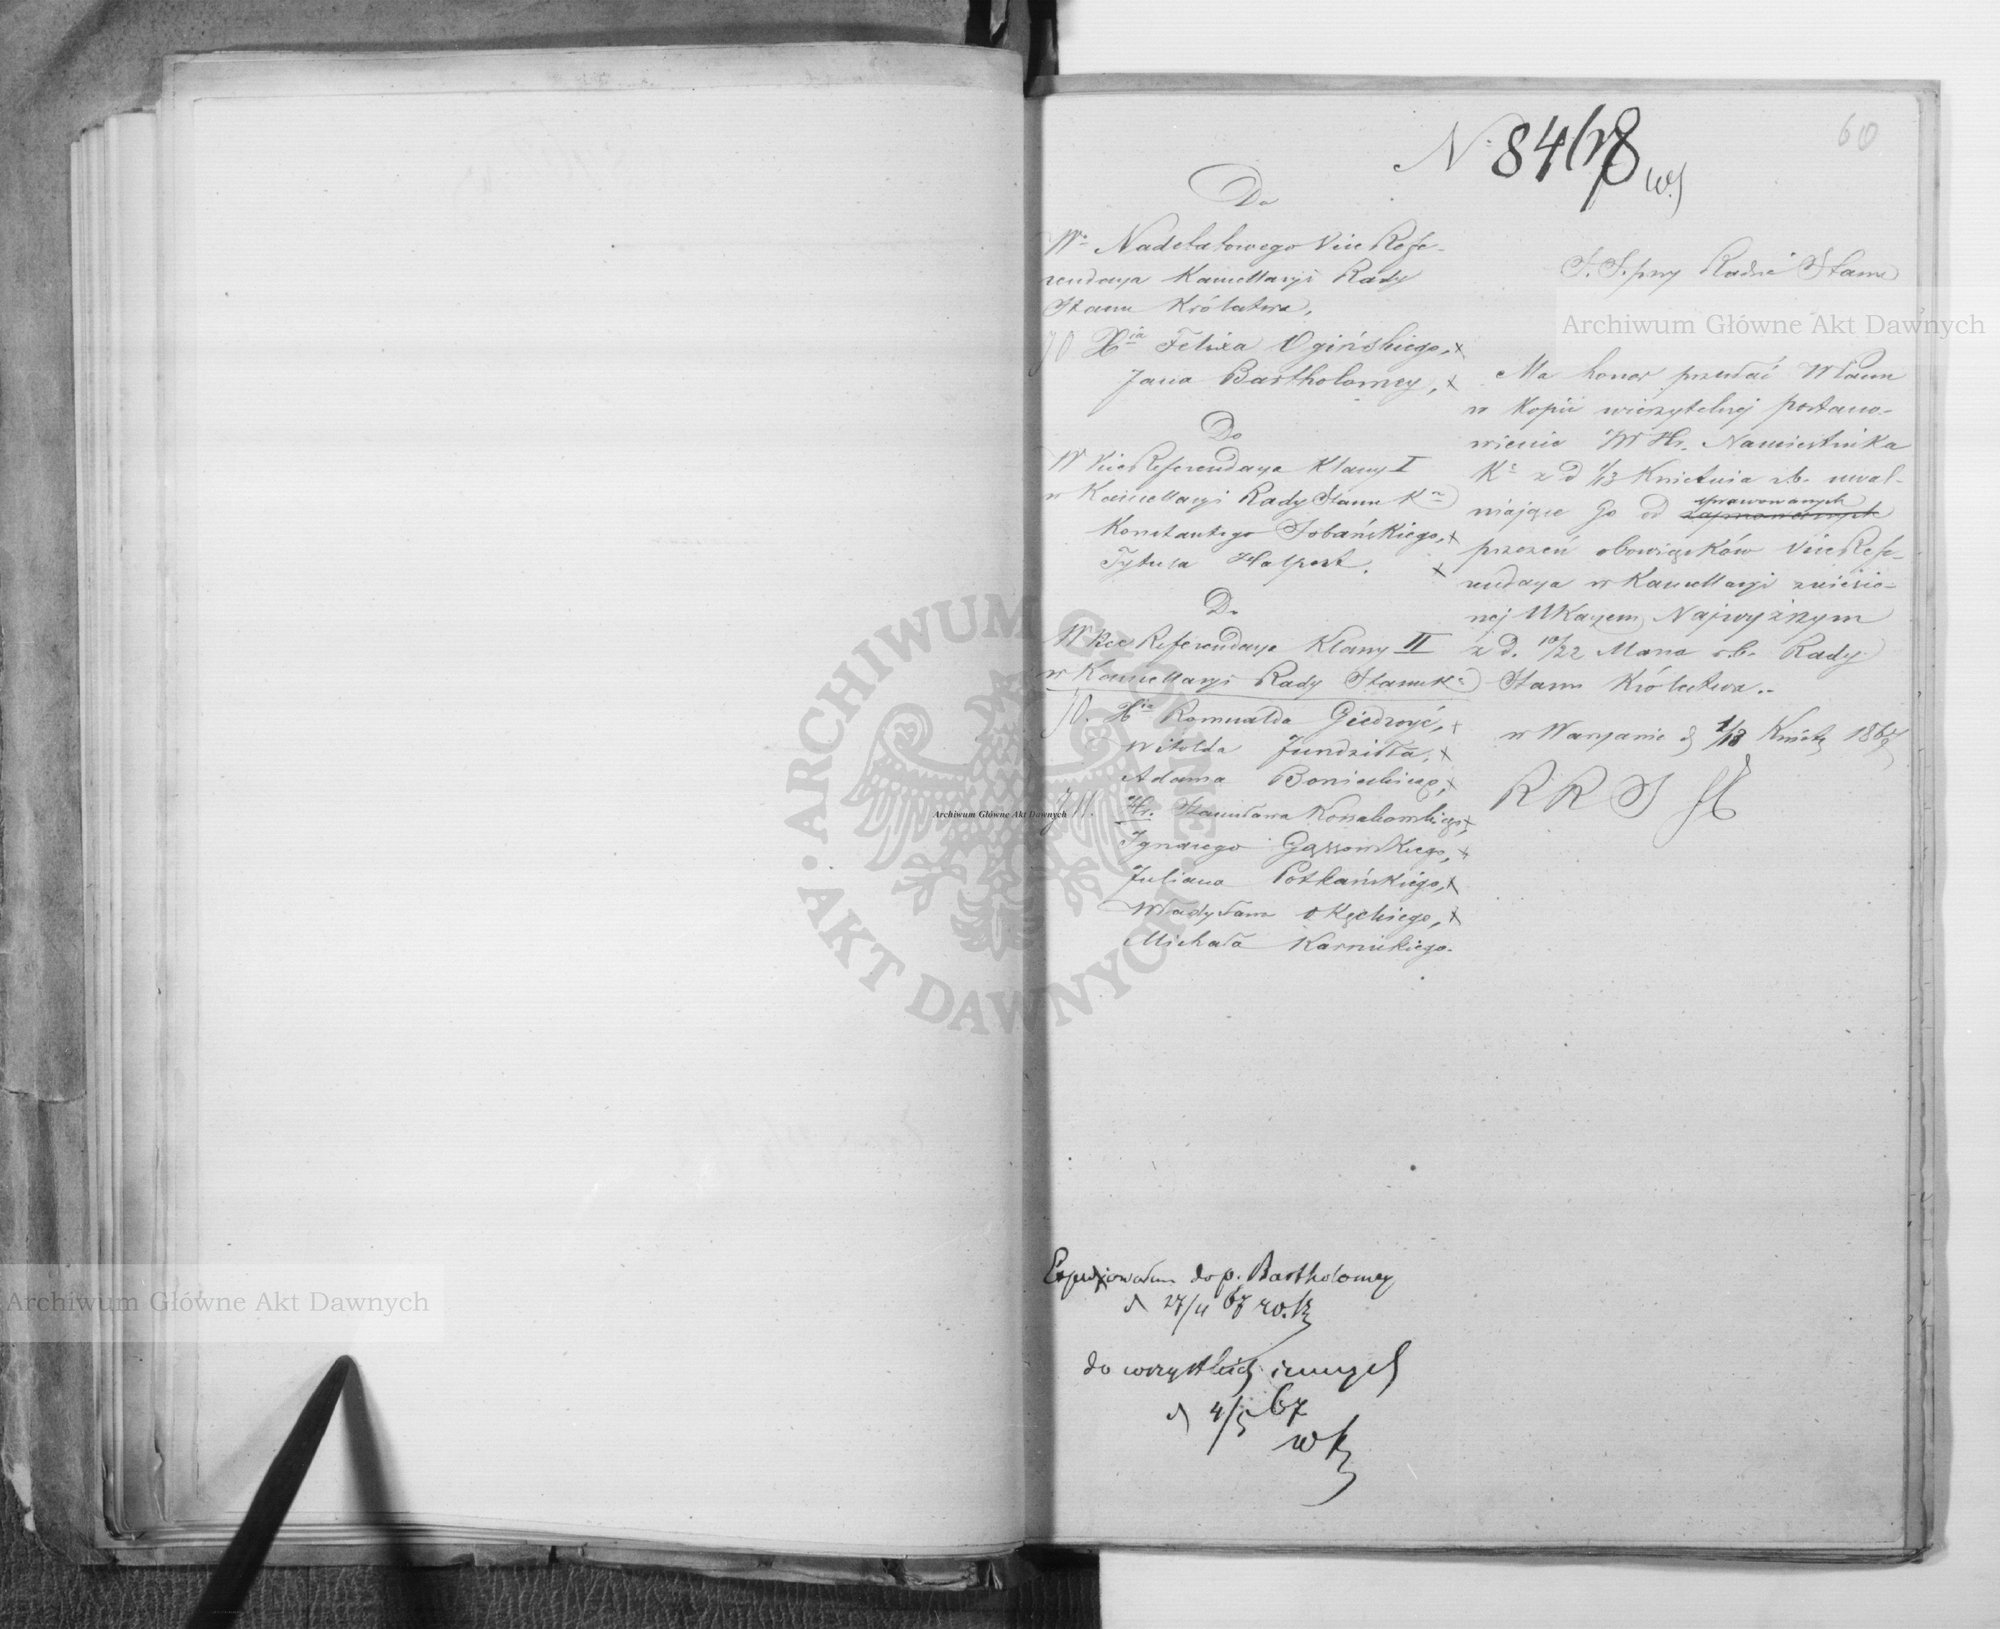 60
Nº 84
Do
Wº Nadetatowego Vice Refe-
rendarza Kancellaryi Rady
Stanu Królestwa,
Xia Felixa Ogińskiego, x
Jana Bartholomey, x
Do
W Vice Referendarza Klassy I
w Kancellaryi Rady Stanu Kа
Konstantego Sobańskiego, x
Tytusa Halpert. x
Do
W Vice Referendarza Klassy II
w Kancellaryi Rady Stanu
Xia Romualda Giedroyć, x
Witolda Jundziłła, x
Adama Bonieckiego, x
Hr. Stanisława Kossakowskiego, x
Ignacego Gąssowskiego, x
Juliana Potkańskiego, x
Władysława Okęckiego, x
Michała Karnickiego.
S. S. przy Radzie Stanu
Ma honor przesłać WPanu
w Kopii wierzytelnej postano-
wienie JW Hr. Namiestnika
Kº z d 1/13 Kwietnia r.b. uwal-
niające Go od zajmowanych sprawowanych
przezeń obowiązków Vice Refe-
rendarza w Kancellaryi zniesio-
nej Ukazem Najwyższym
z d. 10/22 Marca r.b. Rady
Stanu Królestwa.-
w Warszawie d 1/13 Kwiet 1867
R R S
Expedjowałem do p. Bartholomey
d 27/4 67
do wszystkich innych
d 4/5 67
Archiwum Główne Akt Dawnych
Archiwum Główne Akt Dawnych
Archiwum Główne Akt Dawnych
ARCHIWUM GŁÓWNE · AKT DAWNYCH ·